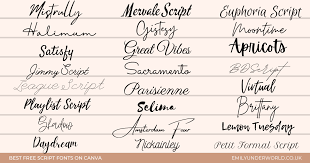 Mistrally Mervale Script Euphoria Script
Halimum Gistesy Moontime
Satisfy Great Vibes Apricots
Jimmy Script Sacramento BDScript
League Script Parisienne Virtual
Playlist Script Selima Brittany
Shadow Amsterdam Four Lemon Tuesday
Daydream Nickainley Petit Formal Script
BEST FREE SCRIPT FONTS ON CANVA EMILYUNDERWORLD.CO.UK